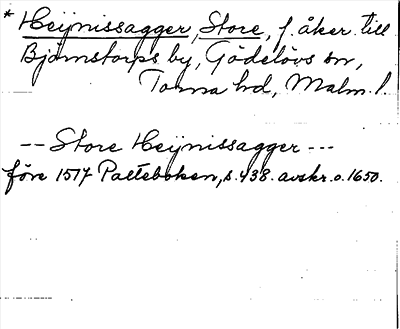 * Heijnissagger, Store, f. åker till
Bjärnstorps by, Gödelövs sn,
Torna hd, Malm. l.
-- Store Heijnissagger ---
före 1517 Palteboken, s. 438. avskr. o. 1650.